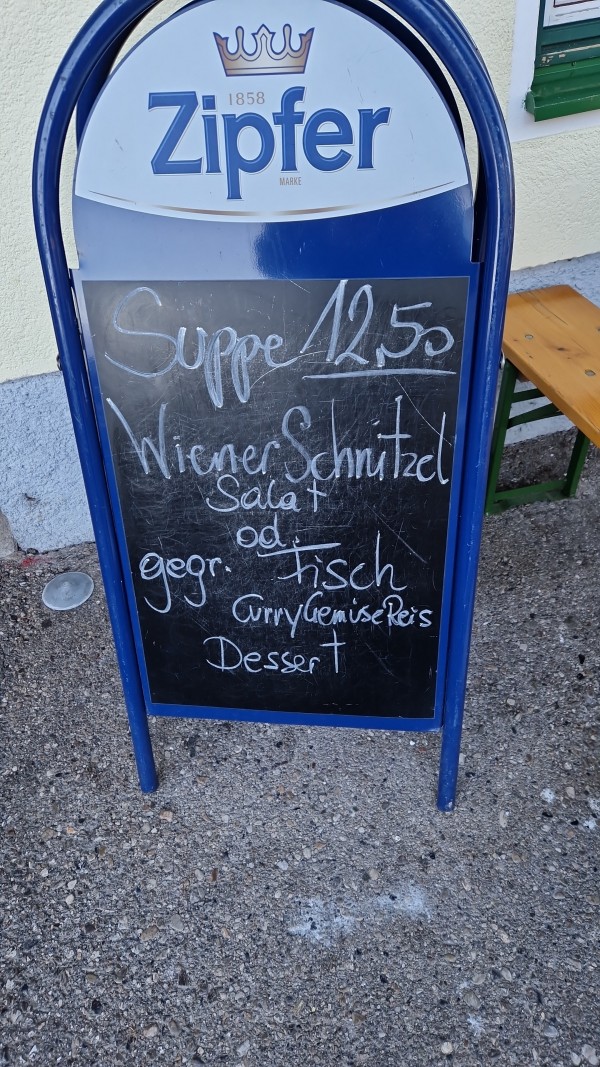 1858
Zipfer
MARKE
Suppe 12,50
Wiener Schnitzel
Salat
od.
gegr. Fisch
Curry Gemüse Reis
Dessert